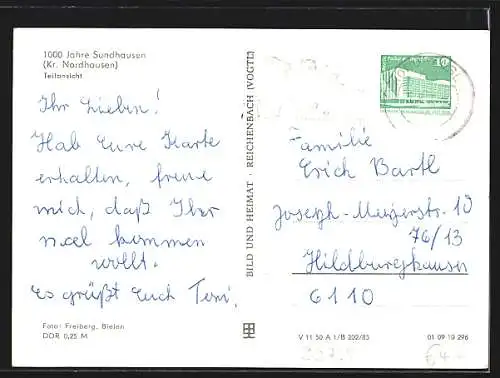 1000 Jahre Sundhausen
(Kr. Nordhausen)
Teilansicht
Ihr Lieben!
Hab Eure Karte
erhalten, freue
mich, daß Ihr
mal kommen
wollt.
Es grüßt Euch Teni.
Foto: Freiberg, Bielen
DDR 0,25 M
BILD UND HEIMAT · REICHENBACH (VOGTL)
10
Familie
Erich Bartl
Joseph-Meyerstr. 10
76/13
Hildburghausen
6110
V 11 50 A 1/B 202/83
01 09 19 296